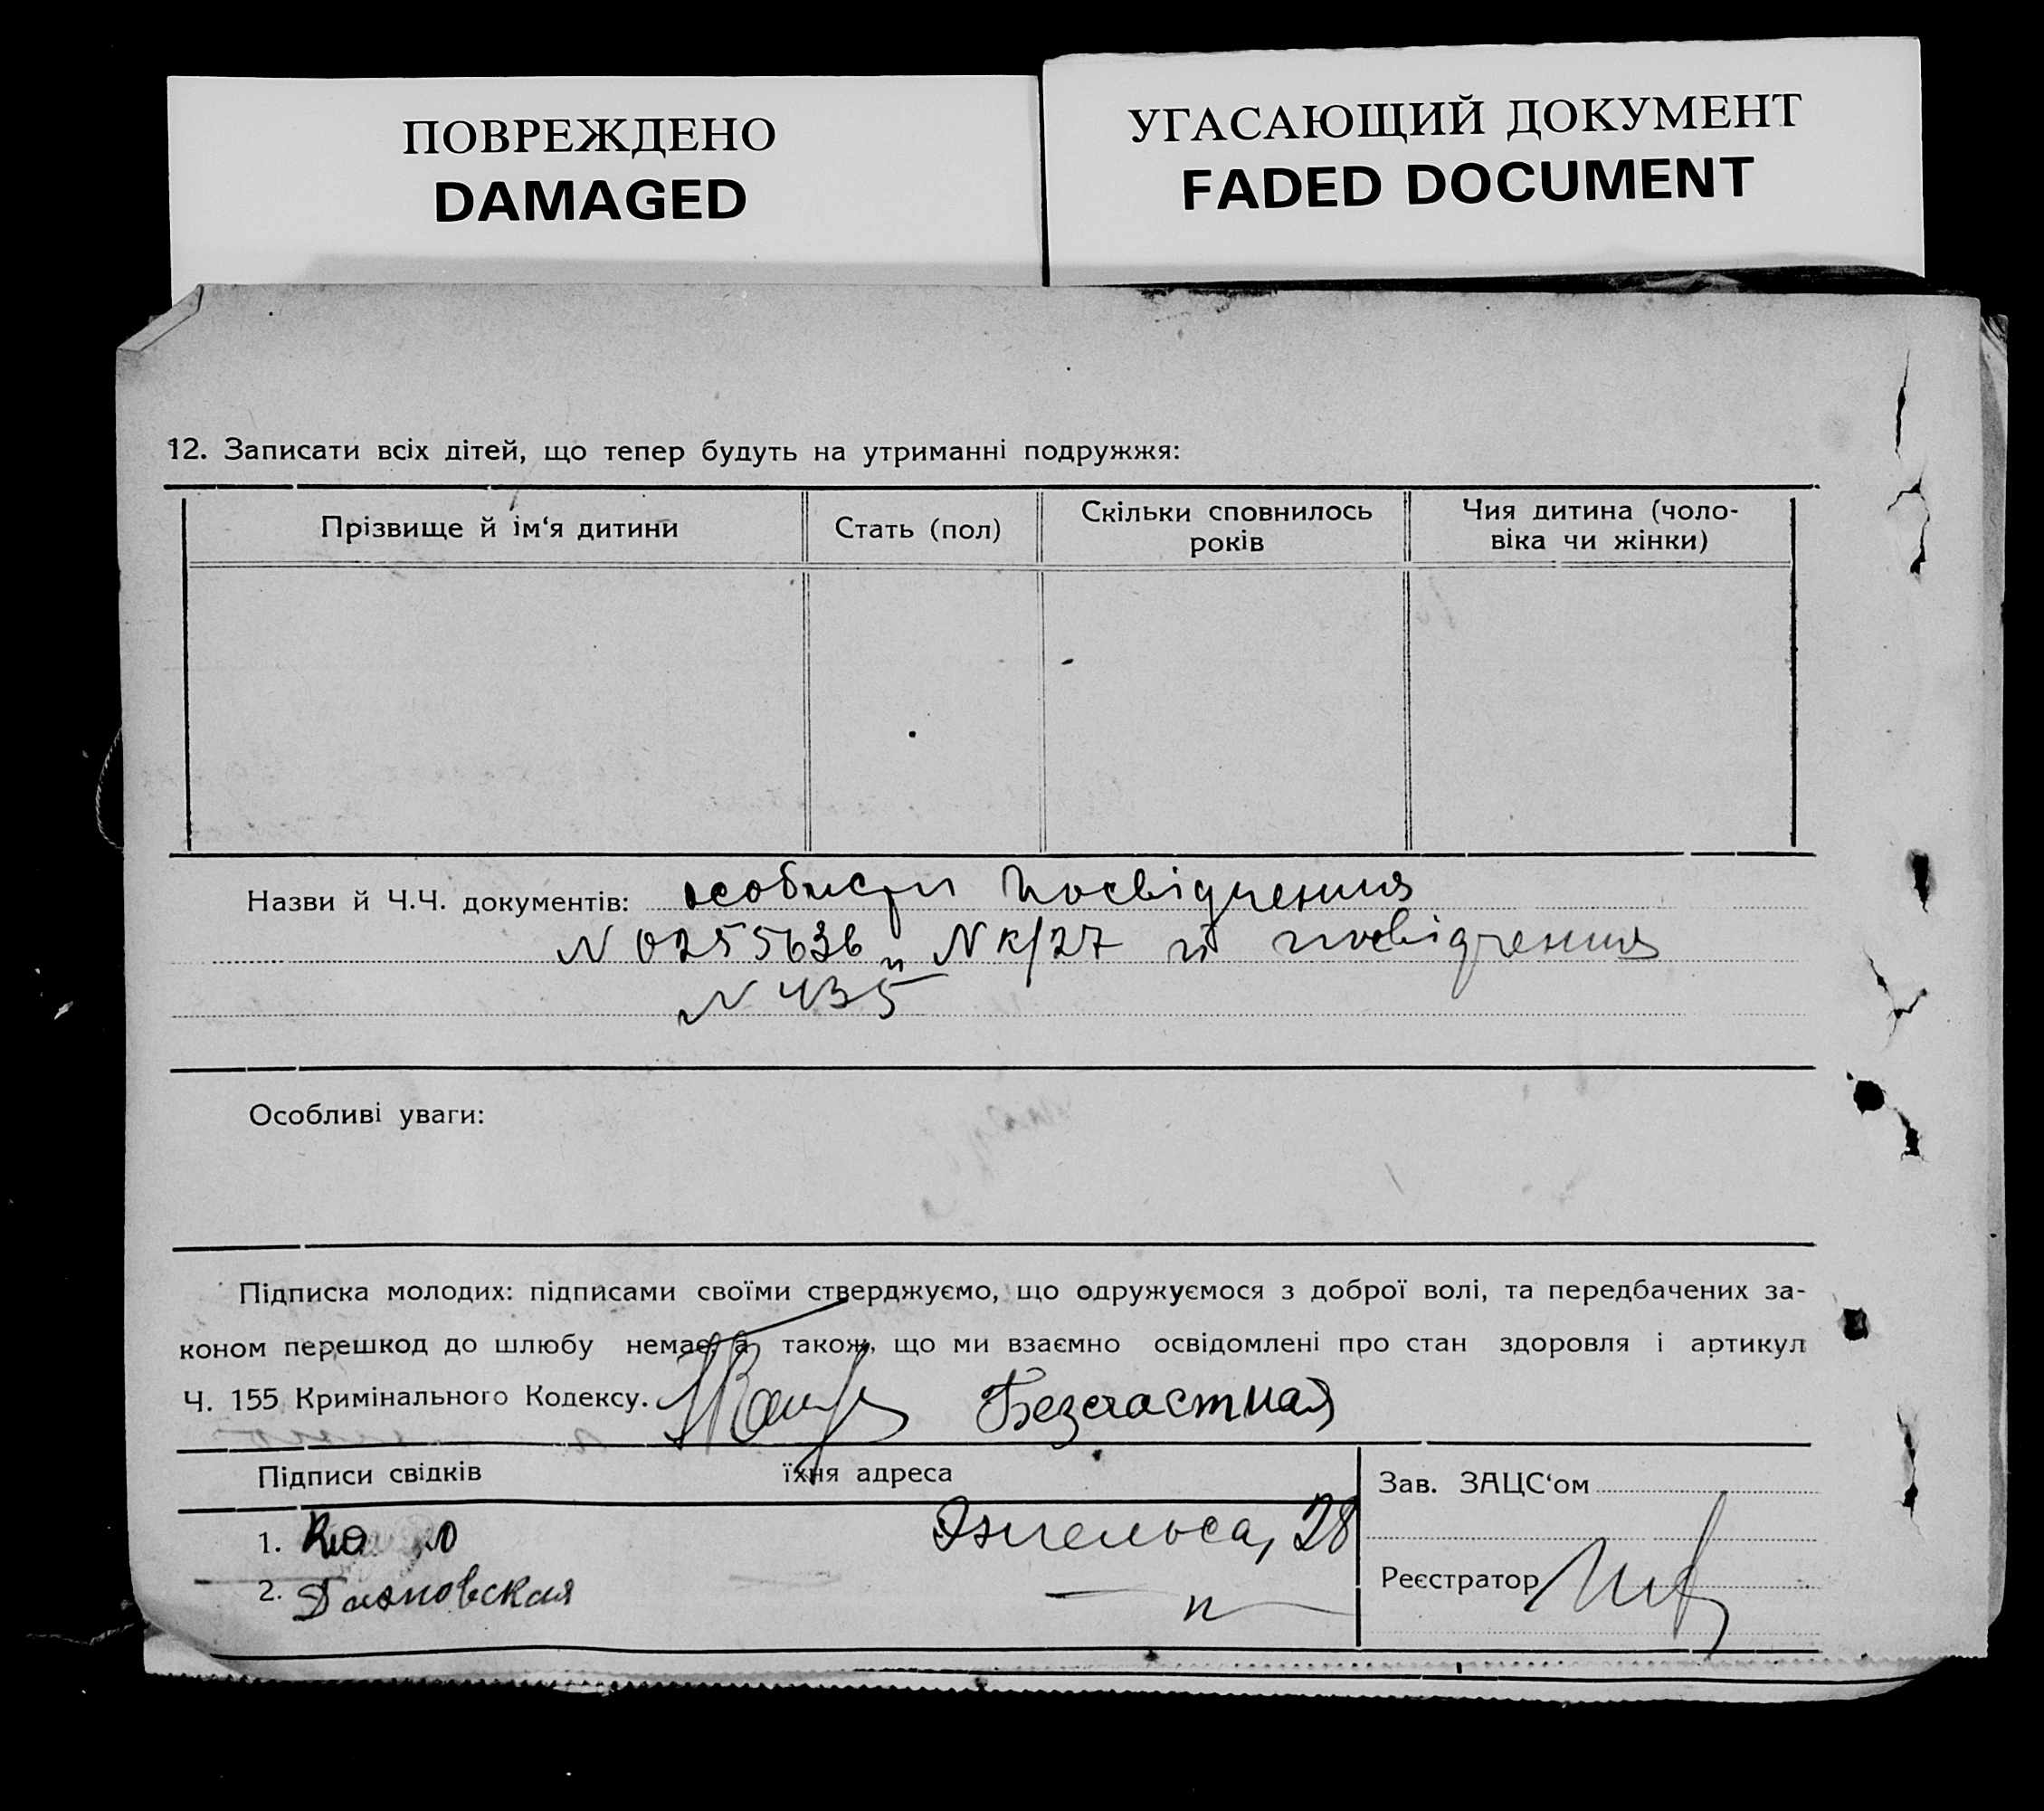 ПОВРЕЖДЕНО
DAMAGED
УГАСАЮЩИЙ ДОКУМЕНТ
FADED DOCUMENT
12. Записати всіх дітей, що тепер будуть на утриманні подружжя:
Прізвище й ім‘я дитини
Стать (пол)
Скільки сповнилось
років
Чия дитина (чоло-
віка чи жінки)
Назви й Ч.Ч. документів: особисти посвідчення
N 0255636 и N к/27 й посвідчення
N 435
Особливі уваги:
Підписка молодих: підписами своїми стверджуємо, що одружуємося з доброї волі, та передбачених за-
коном перешкод до шлюбу немає, а також, що ми взаємно освідомлені про стан здоровля і артикул
Ч. 155 Кримінального Кодексу. Безчастная
Підписи свідків
їхня адреса
1. Энгельса, 28
2. — „ —
Зав. ЗАЦС‘ом
Реєстратор